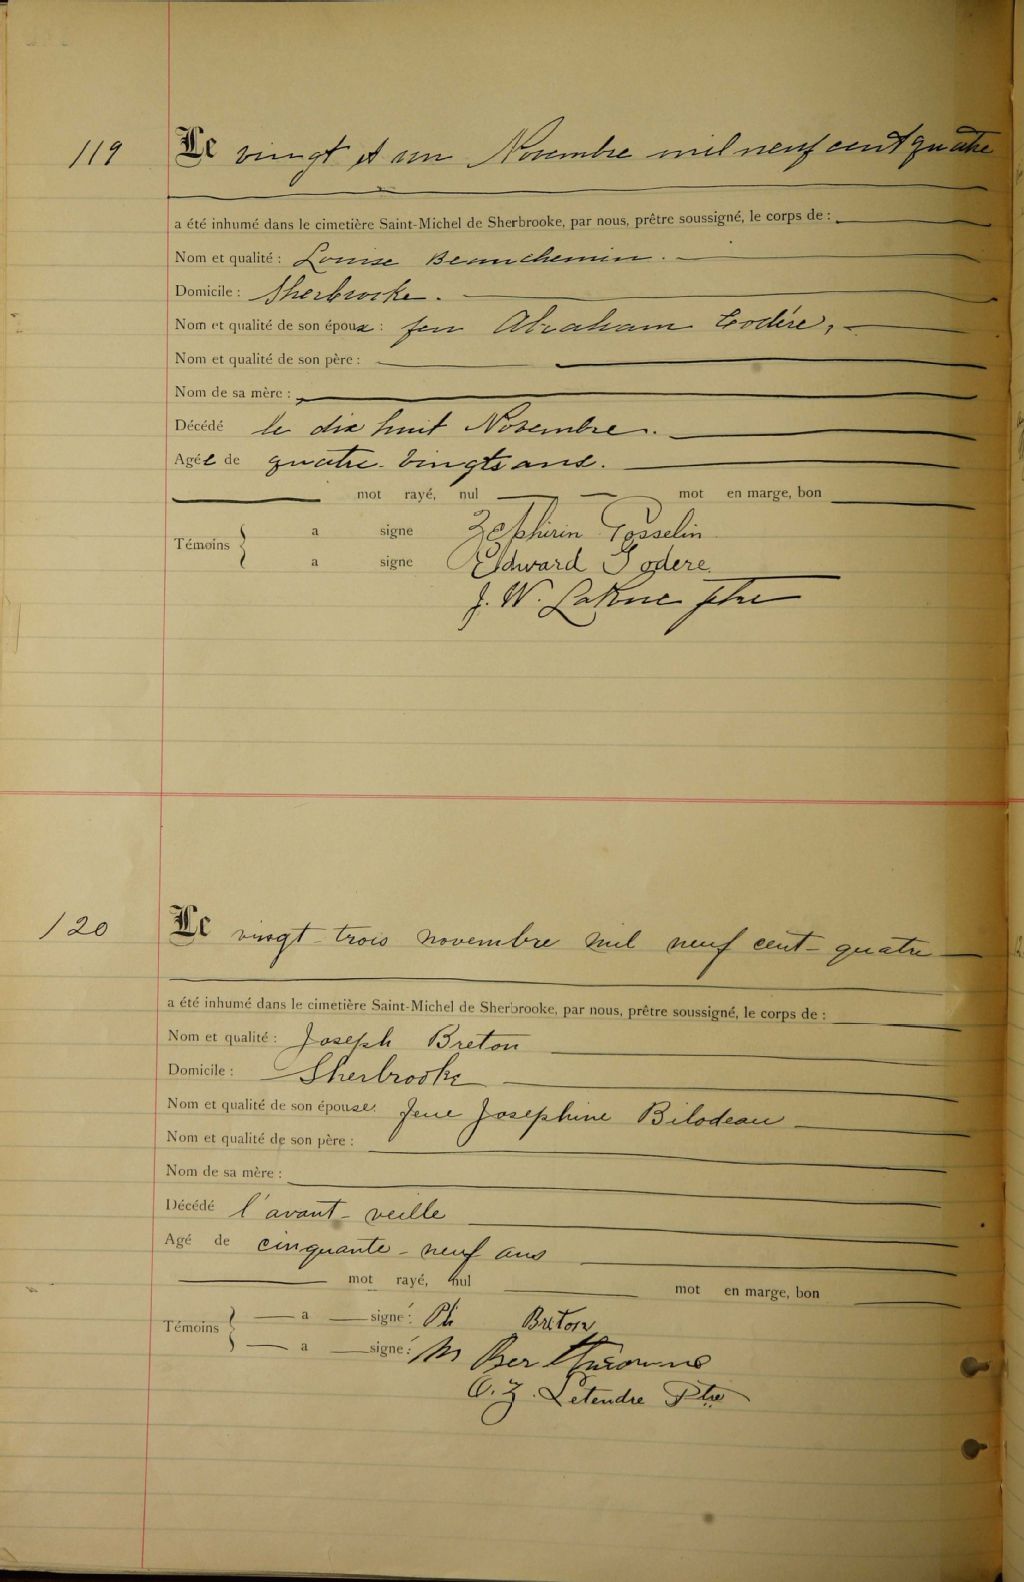 119
Le vingt et un Novembre mil neuf cent quatre
a été inhumé dans le cimetière Saint-Michel de Sherbrooke, par nous, prêtre soussigné, le corps de :
Nom et qualité : Louise Beauchemin.
Domicile : Sherbrooke.
Nom et qualité de son époux : feu Abraham Godére,
Nom et qualité de son père :
Nom de sa mère :
Décédé le dix huit Novembre.
Agée de quatre-vingts ans.
mot rayé, nul mot en marge, bon
Témoins a signe Zéphirin Gosselin
a signe Edward Godere
J. W. LaRue ptre
120
Le vingt-trois novembre mil neuf cent-quatre
a été inhumé dans le cimetière Saint-Michel de Sherbrooke, par nous, prêtre soussigné, le corps de :
Nom et qualité : Joseph Breton
Domicile : Sherbrooke
Nom et qualité de son épouse. feue Josephine Bilodeau
Nom et qualité de son père :
Nom de sa mère :
Décédé l'avant-veille
Agé de cinquante-neuf ans
mot rayé, nul mot en marge, bon
Témoins a signé: Ph Breton
a signé: M
Letendre Ptre